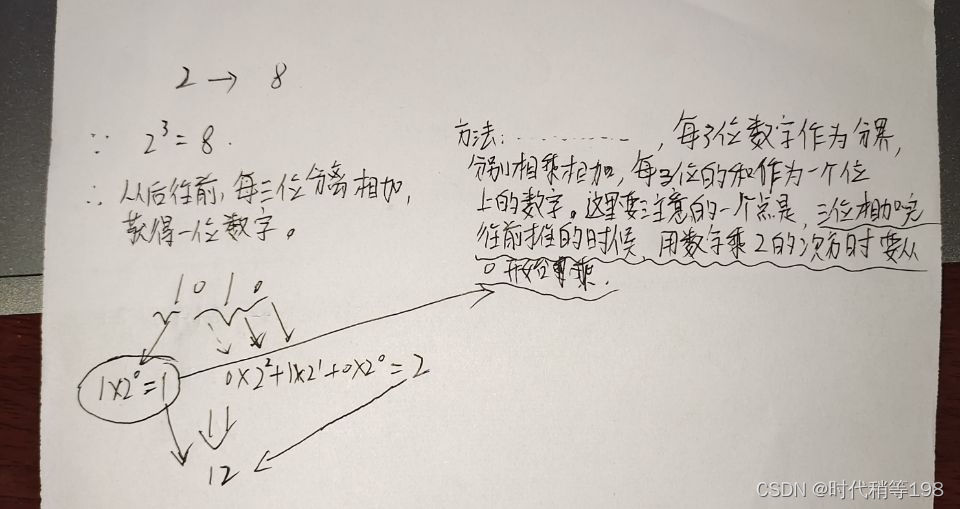 2 → 8
∵ 2³=8.
∴ 从后往前,每三位分离相加,
获得一位数字。
1010
1×2⁰=1
0×2²+1×2¹+0×2⁰=2
12
方法:………… ,每3位数字作为分界,
分别相乘相加,每3位的和作为一个位
上的数字。这里要注意的一个点是,三位相加完
往前推的时候,用数字乘2的次方时要从
0开始乘.
CSDN @时代稍等198